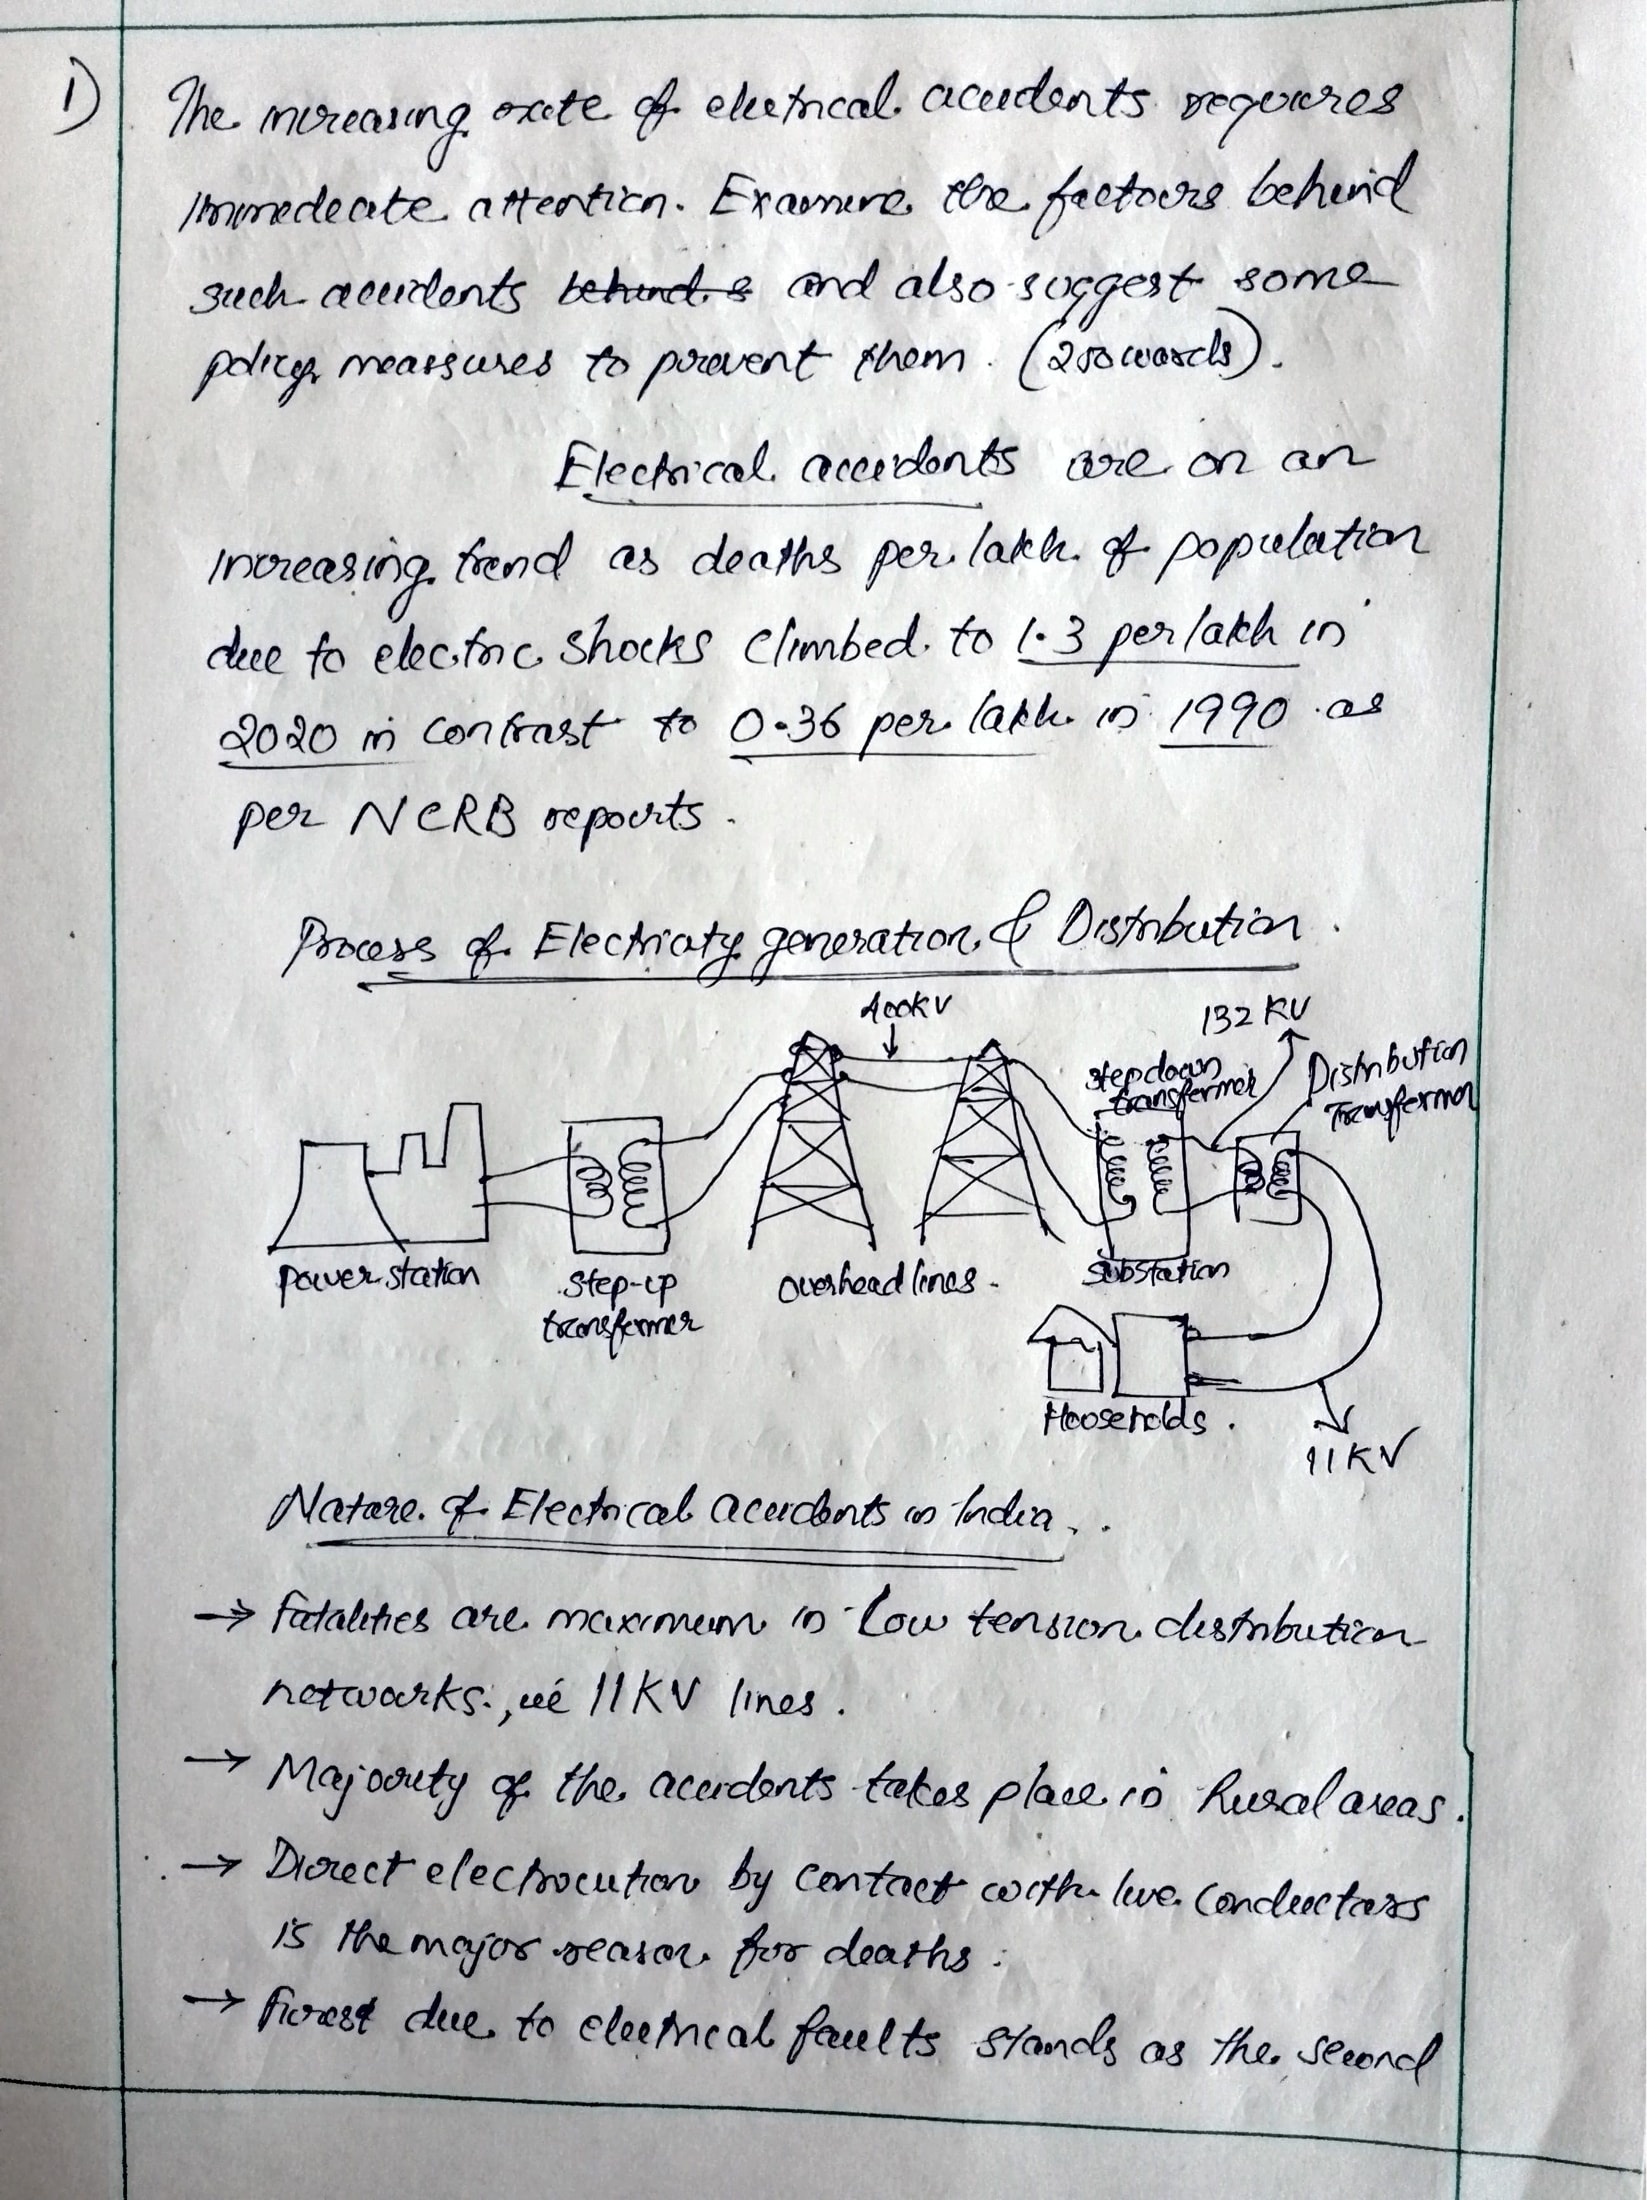 1)
The increasing rate of electrical accidents requires
immediate attention. Examine the factors behind
such accidents behind s and also suggest some
policy meassures to prevent them. (250 words).
Electrical accidents are on an
increasing trend as deaths per lakh of population
due to electric shocks climbed to 1.3 per lakh in
2020 in contrast to 0.36 per lakh in 1990 as
per NCRB reports.
Process of Electricity generation & Distribution.
400KV
132 KV
Stepdown
transformer
Distribution
Transformer
Power station
Step-up
transformer
Overhead lines.
Substation
Households.
11KV
Nature of Electrical accidents in India..
→ Fatalities are maximum in Low tension distribution
networks., ie 11KV lines.
→ Majority of the accidents takes place in Rural areas.
→ Direct electrocution by contact with live conductors
is the major reason for deaths.
→ Fires due to electrical faults stands as the second